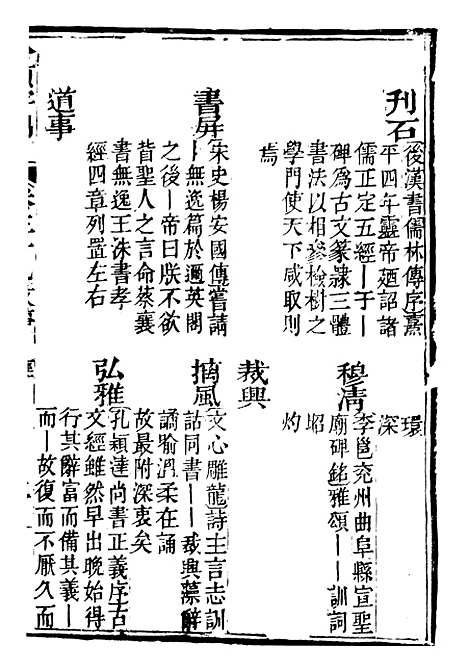 刊石
後漢書儒林傳序熹
平四年靈帝廼詔諸
儒正定五經｜于｜
碑為古文篆隸三體
書法以相參檢樹之
學門使天下咸取則
焉
書屏
宋史楊安國傳嘗請
｜無逸篇於邇英閣
之後｜帝曰朕不欲
背聖人之言命蔡襄
書無逸王洙書孝
經四章列置左右
道事
環
深
穆清
李邕兗州曲阜縣宣聖
廟碑銘雅頌｜｜訓詞
昭
灼
裁興
摛風
文心雕龍詩主言志訓
詁同書｜｜裁興藻辭
譎喻溫柔在誦
故最附深衷矣
弘雅
孔穎達尚書正義序古
文經雖然早出晚始得
行其辭富而備其義｜
而｜故復而不厭久而